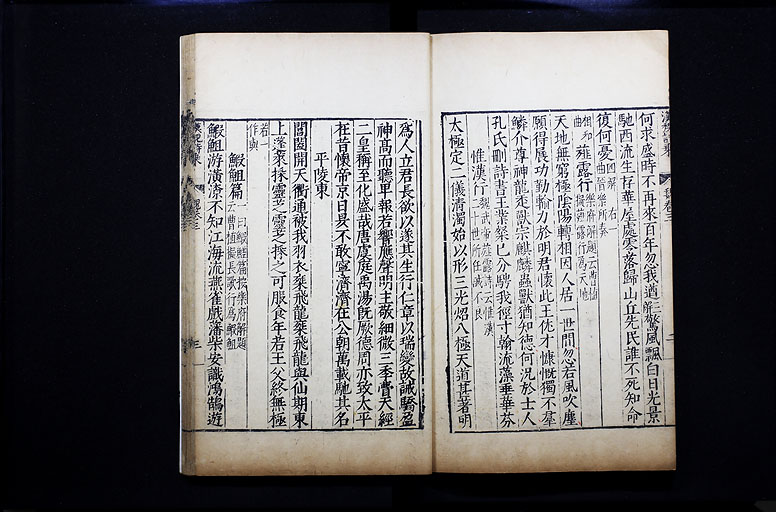 何求盛時不再來百年忽我遒三解驚風飄白日光景
馳西流生存華屋處零落歸山丘先民誰不死知命
復何憂四解 右一曲晉樂所奏
薤露行樂府解題云曹植擬薤露行為天地
天地無窮極陰陽轉相因人居一世間忽若風吹塵
願得展功勤輸力於明君懷此王佐才慷慨獨不羣
鱗介尊神龍走獸宗麒麟蟲獸猶知德何況於士人
孔氏刪詩書王業粲已分騁我徑寸翰流藻垂華芬
惟漢行魏武帝薤露詩云惟漢二十世所任誠不良
太極定二儀清濁始以形三光炤八極天道甚著明
為人立君長欲以遂其生行仁章以瑞變故誡驕盈
神高而聽卑報若響應聲明主敬細微三季瞢天經
二皇稱至化盛哉唐虞庭禹湯既厥德周亦致太平
在昔懷帝京日昃不敢寧濟濟在公朝萬載馳其名
平陵東
閶闔開天衢通被我羽衣乘飛龍乘飛龍與仙期東
上蓬萊採靈芝靈芝採之可服食年若王父終無極
若一作與
鰕䱇篇一曰鰕鱓篇按樂府解題云曹植擬長歌行為鰕䱇
鰕䱇游潢潦不知江海流燕雀戲藩柴安識鴻鵠遊
三